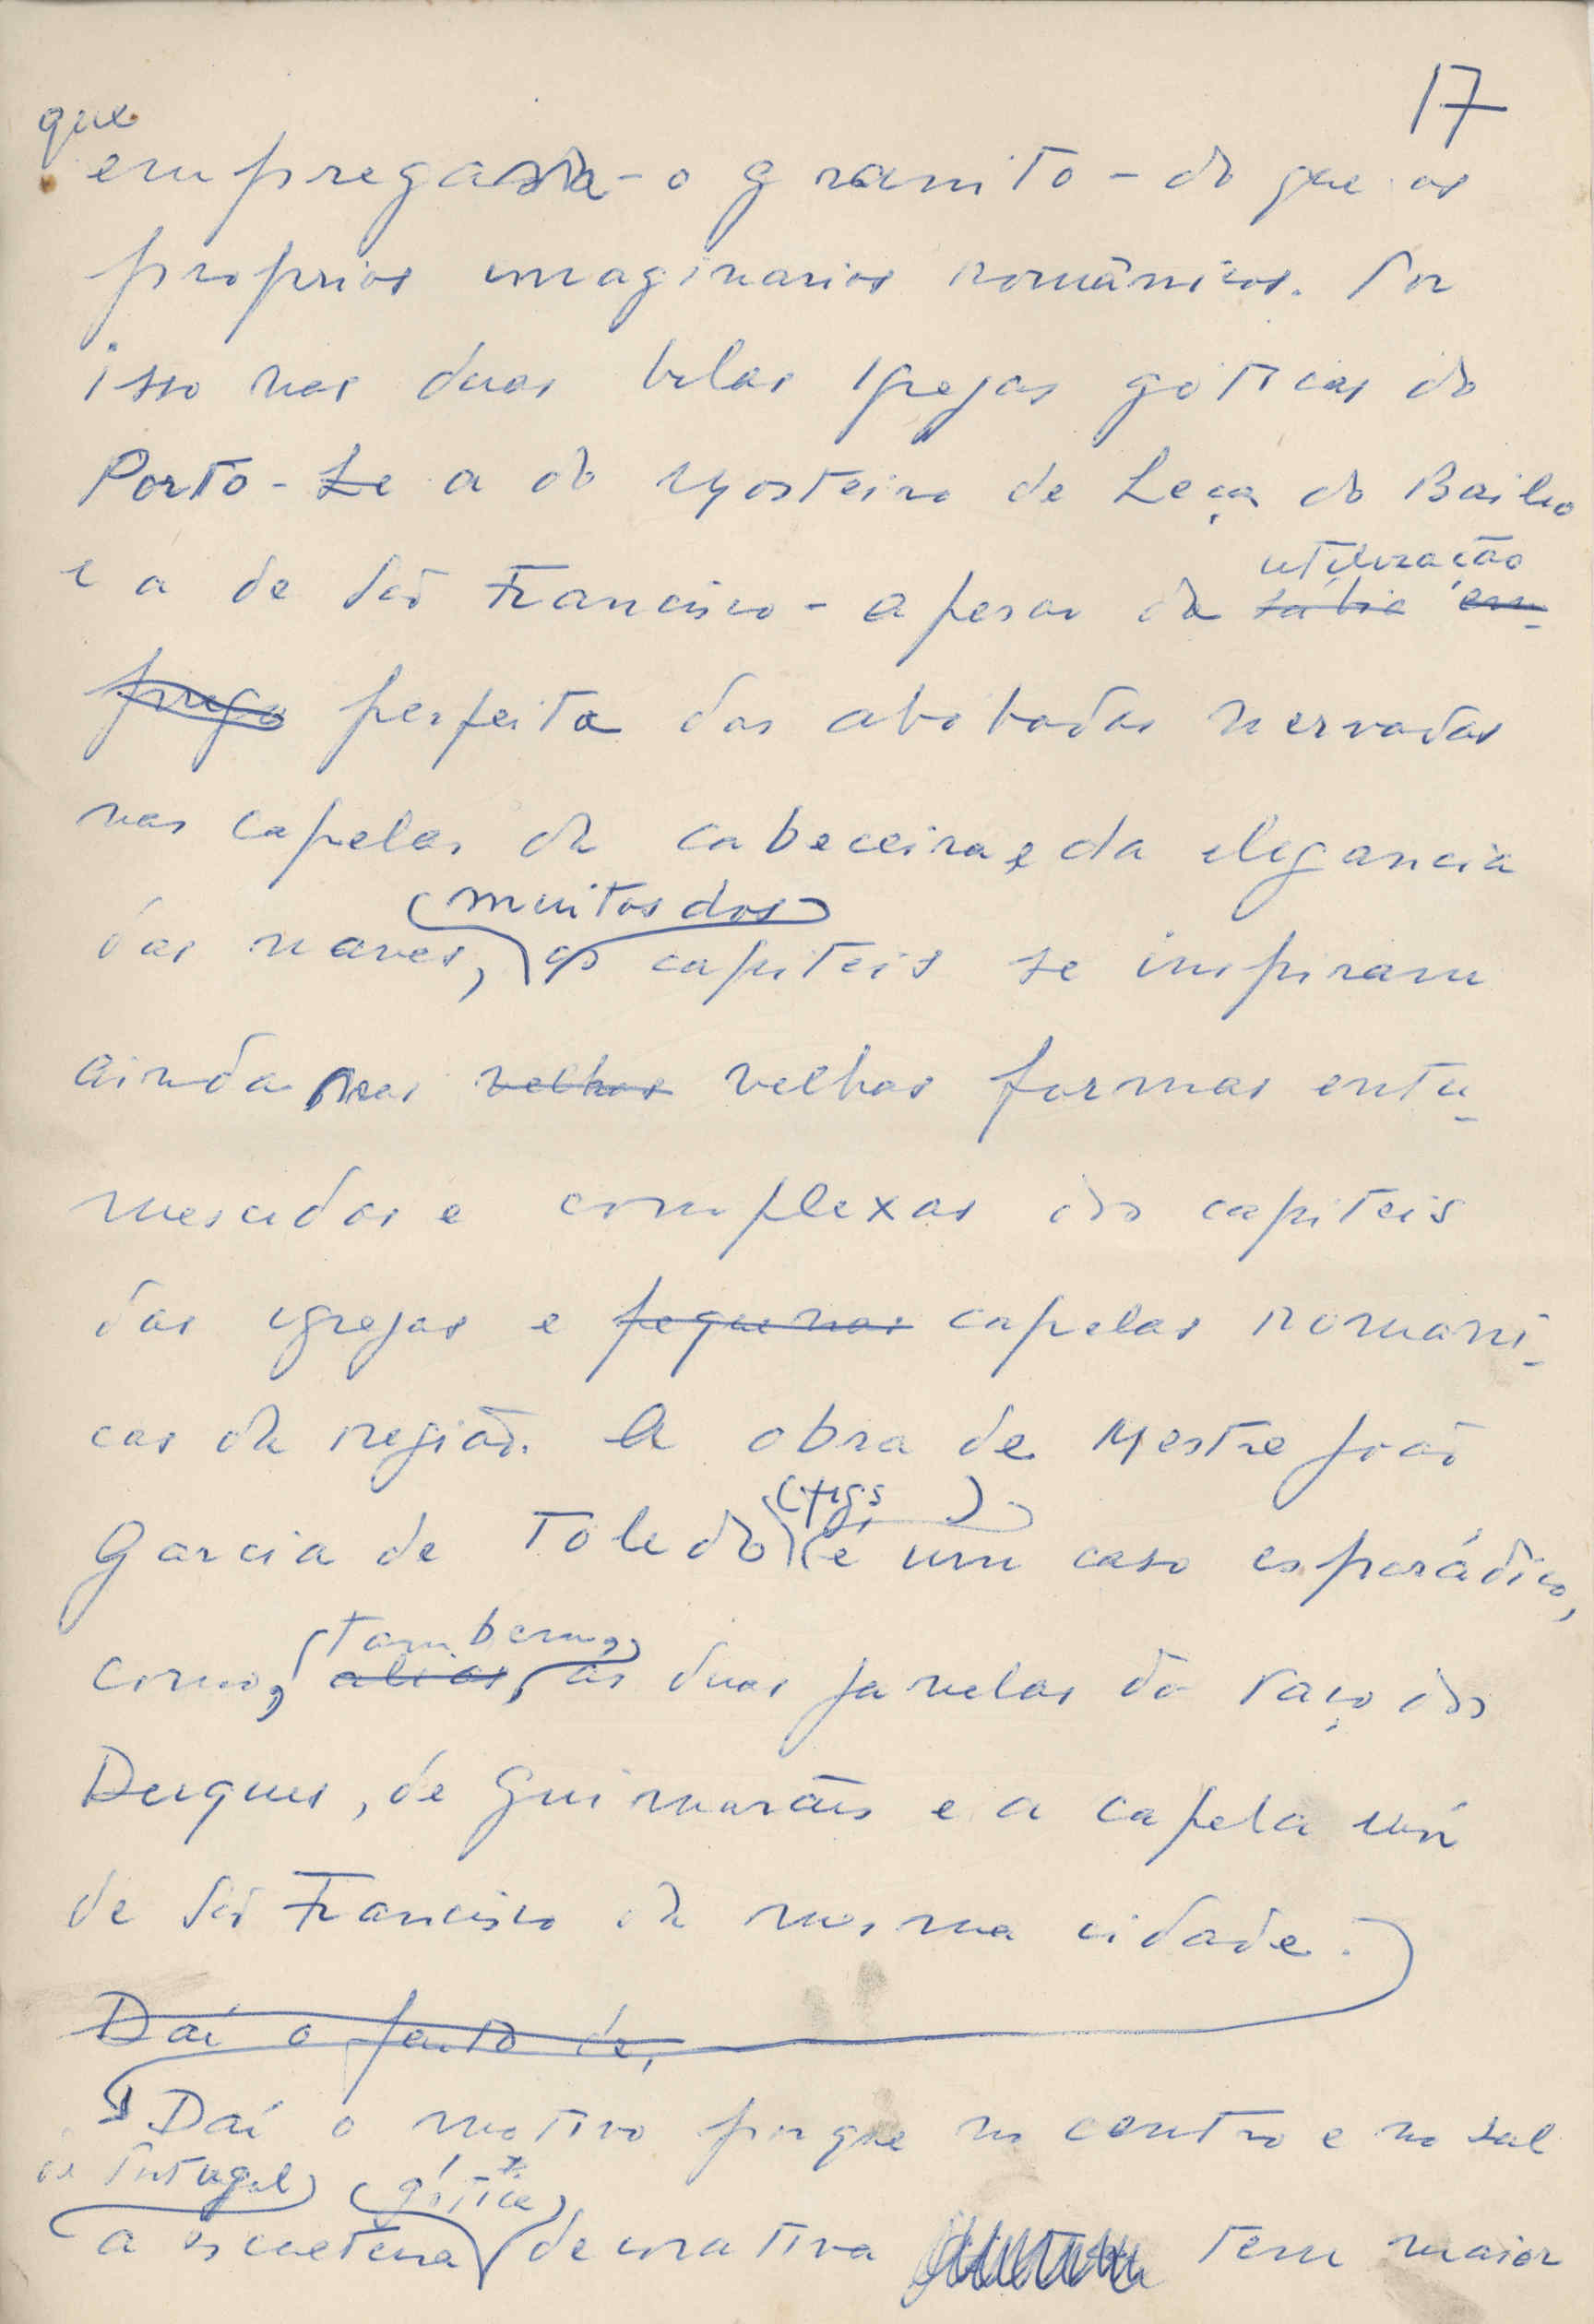 17
que
empregava - o granito - do que os
proprios imaginarios românicos. Por
isso nas duas belas igrejas goticas do
Porto - Le a do Mosteiro de Leça do Bailio
e a de São Francisco - apesar da sábia em-
utilização
prego perfeita das abobadas nervadas
nas capelas da cabeceira e da elegancia
muitos dos
das naves, os capiteis se inspiram
ainda nas velhas velhas formas entu-
mescidas e complexas dos capiteis
das igrejas e pequenas capelas romani-
cas da região. A obra de Mestre João
(figs )
Garcia de Toledo é um caso esporádico,
tambem,
como, aliás, as duas janelas do Paço dos
Duques, de Guimarães e a capela
de São Francisco da mesma cidade.
Daí o facto de,
Daí o motivo porque no centro e no sul
de Portugal gótica
a escultura decorativa tem maior